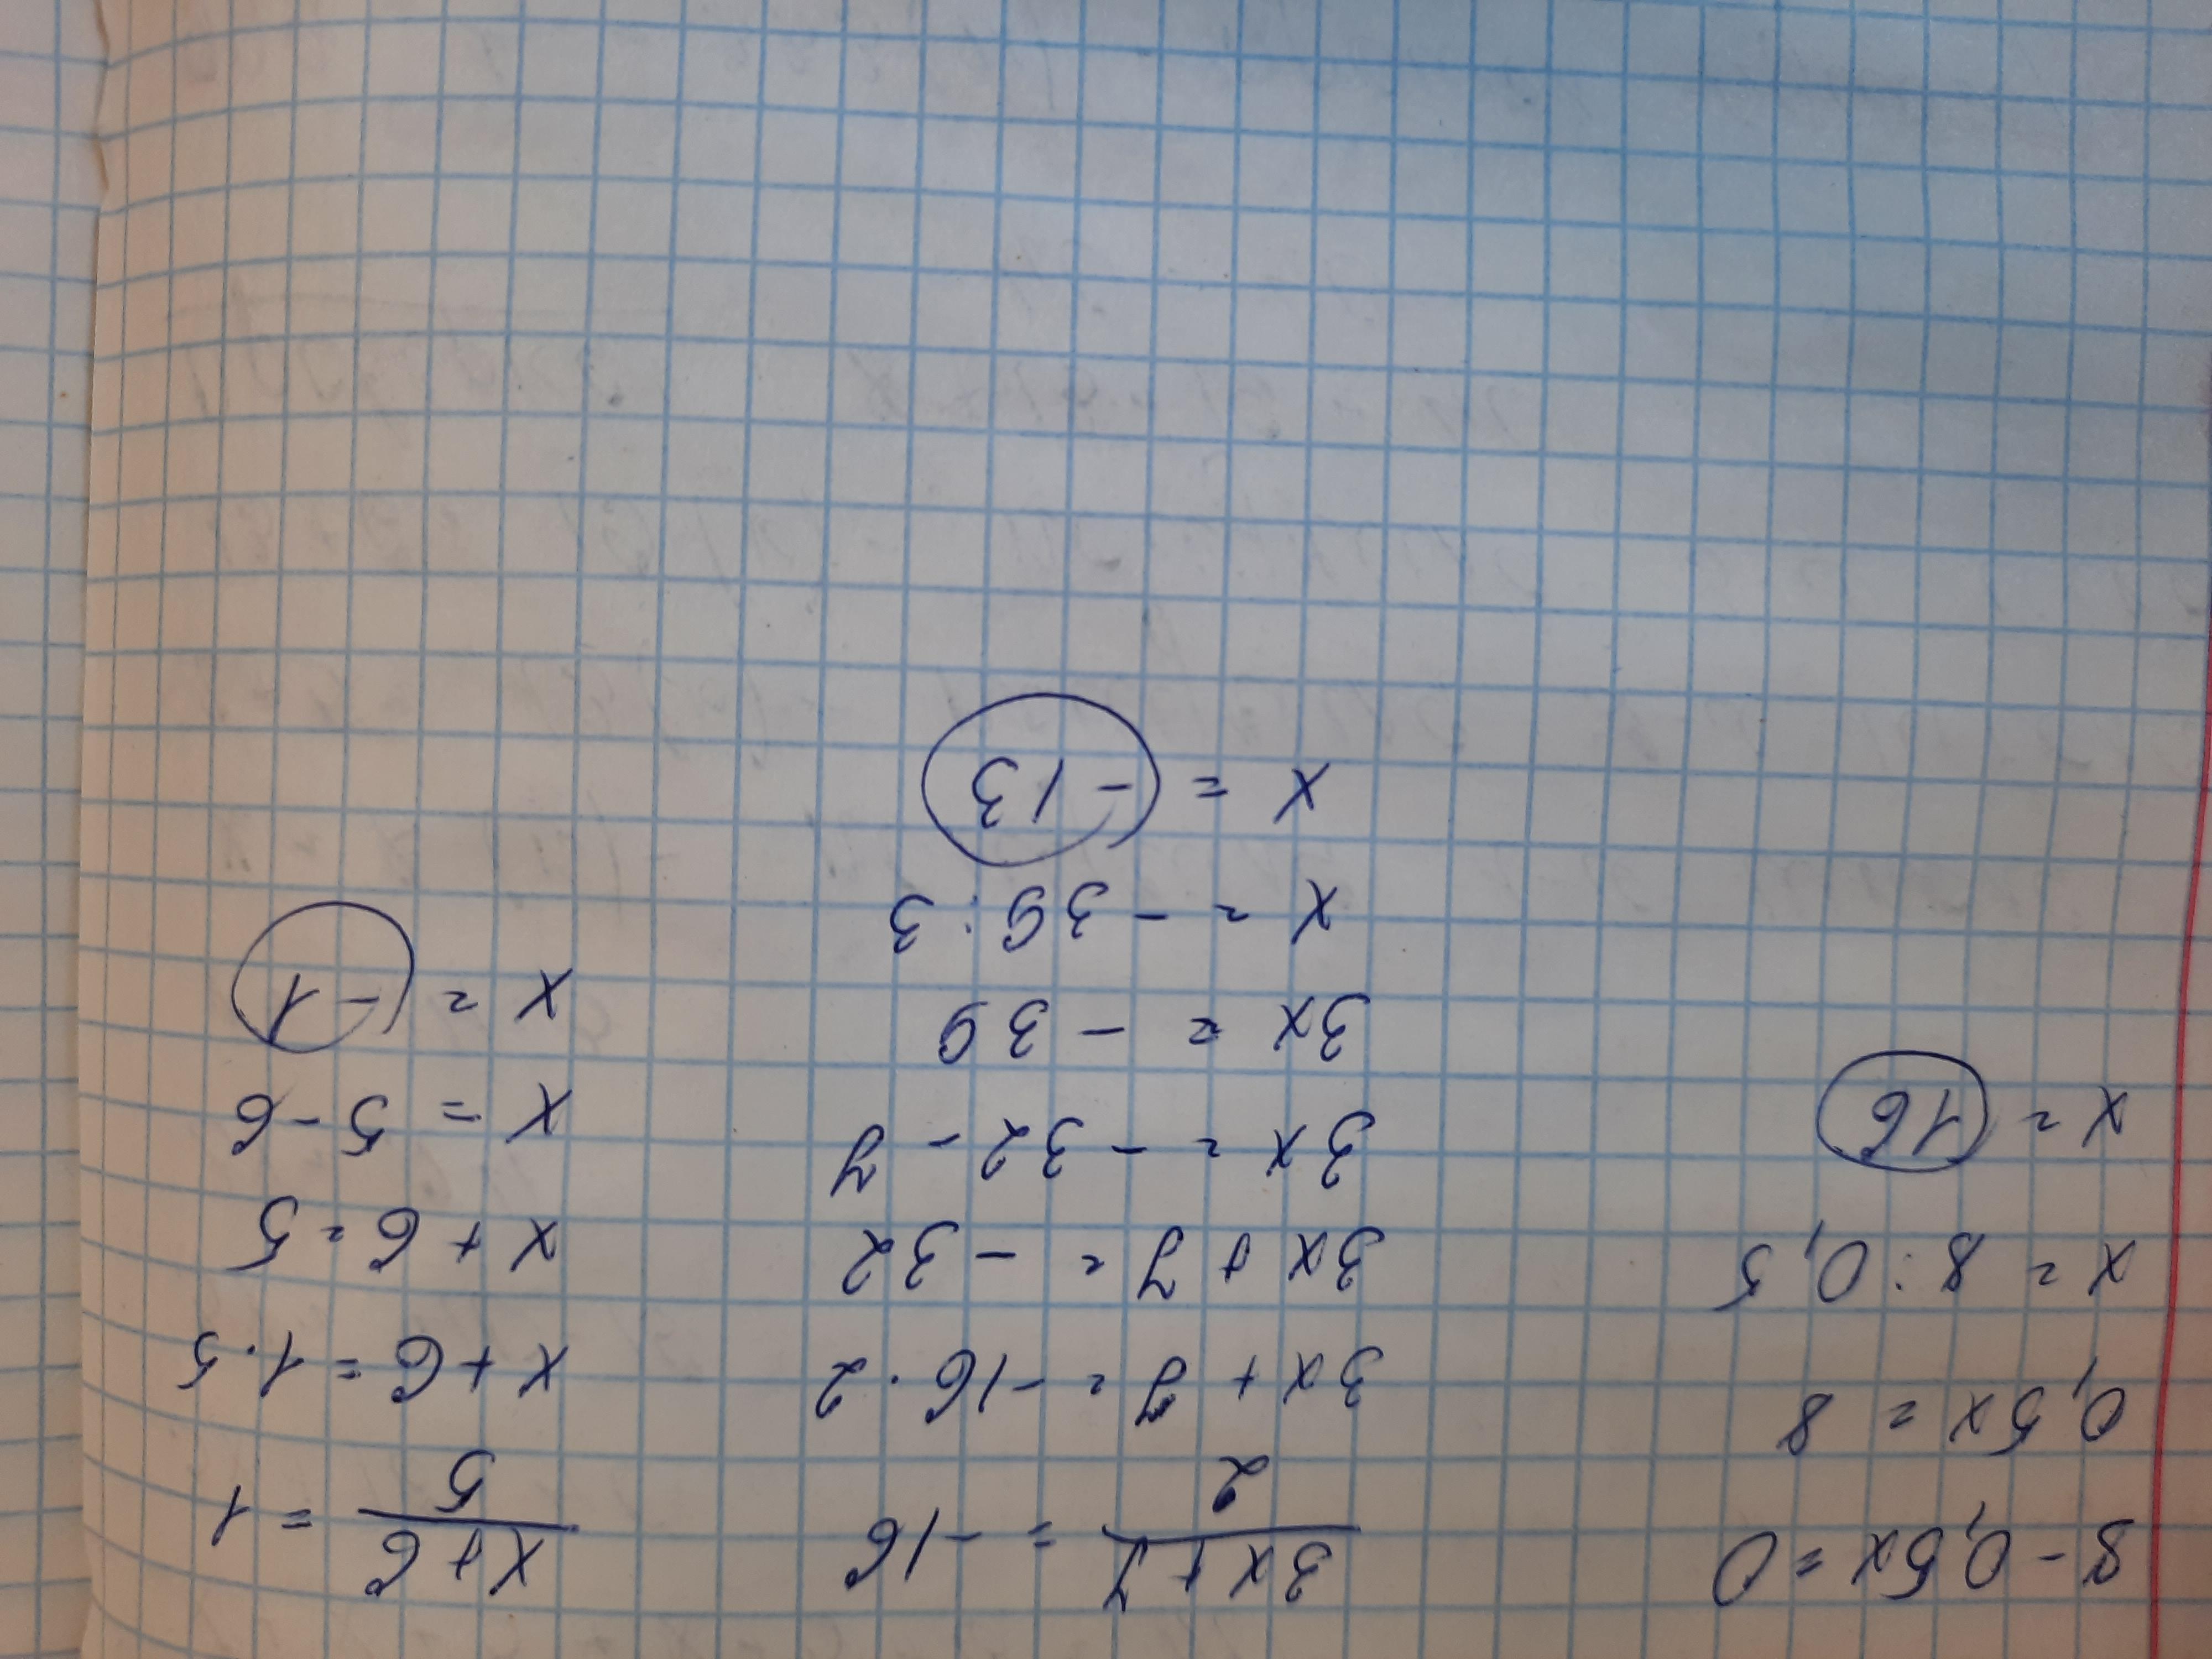 8 - 0,5x = 0
0,5x = 8
x = 8 : 0,5
x = 16
3x + 7
2
= -16
3x + 7 = -16 · 2
3x + 7 = -32
3x = -32 - 7
3x = -39
x = -39 : 3
x = -13
x + 6
5
= 1
x + 6 = 1 · 5
x + 6 = 5
x = 5 - 6
x = -1